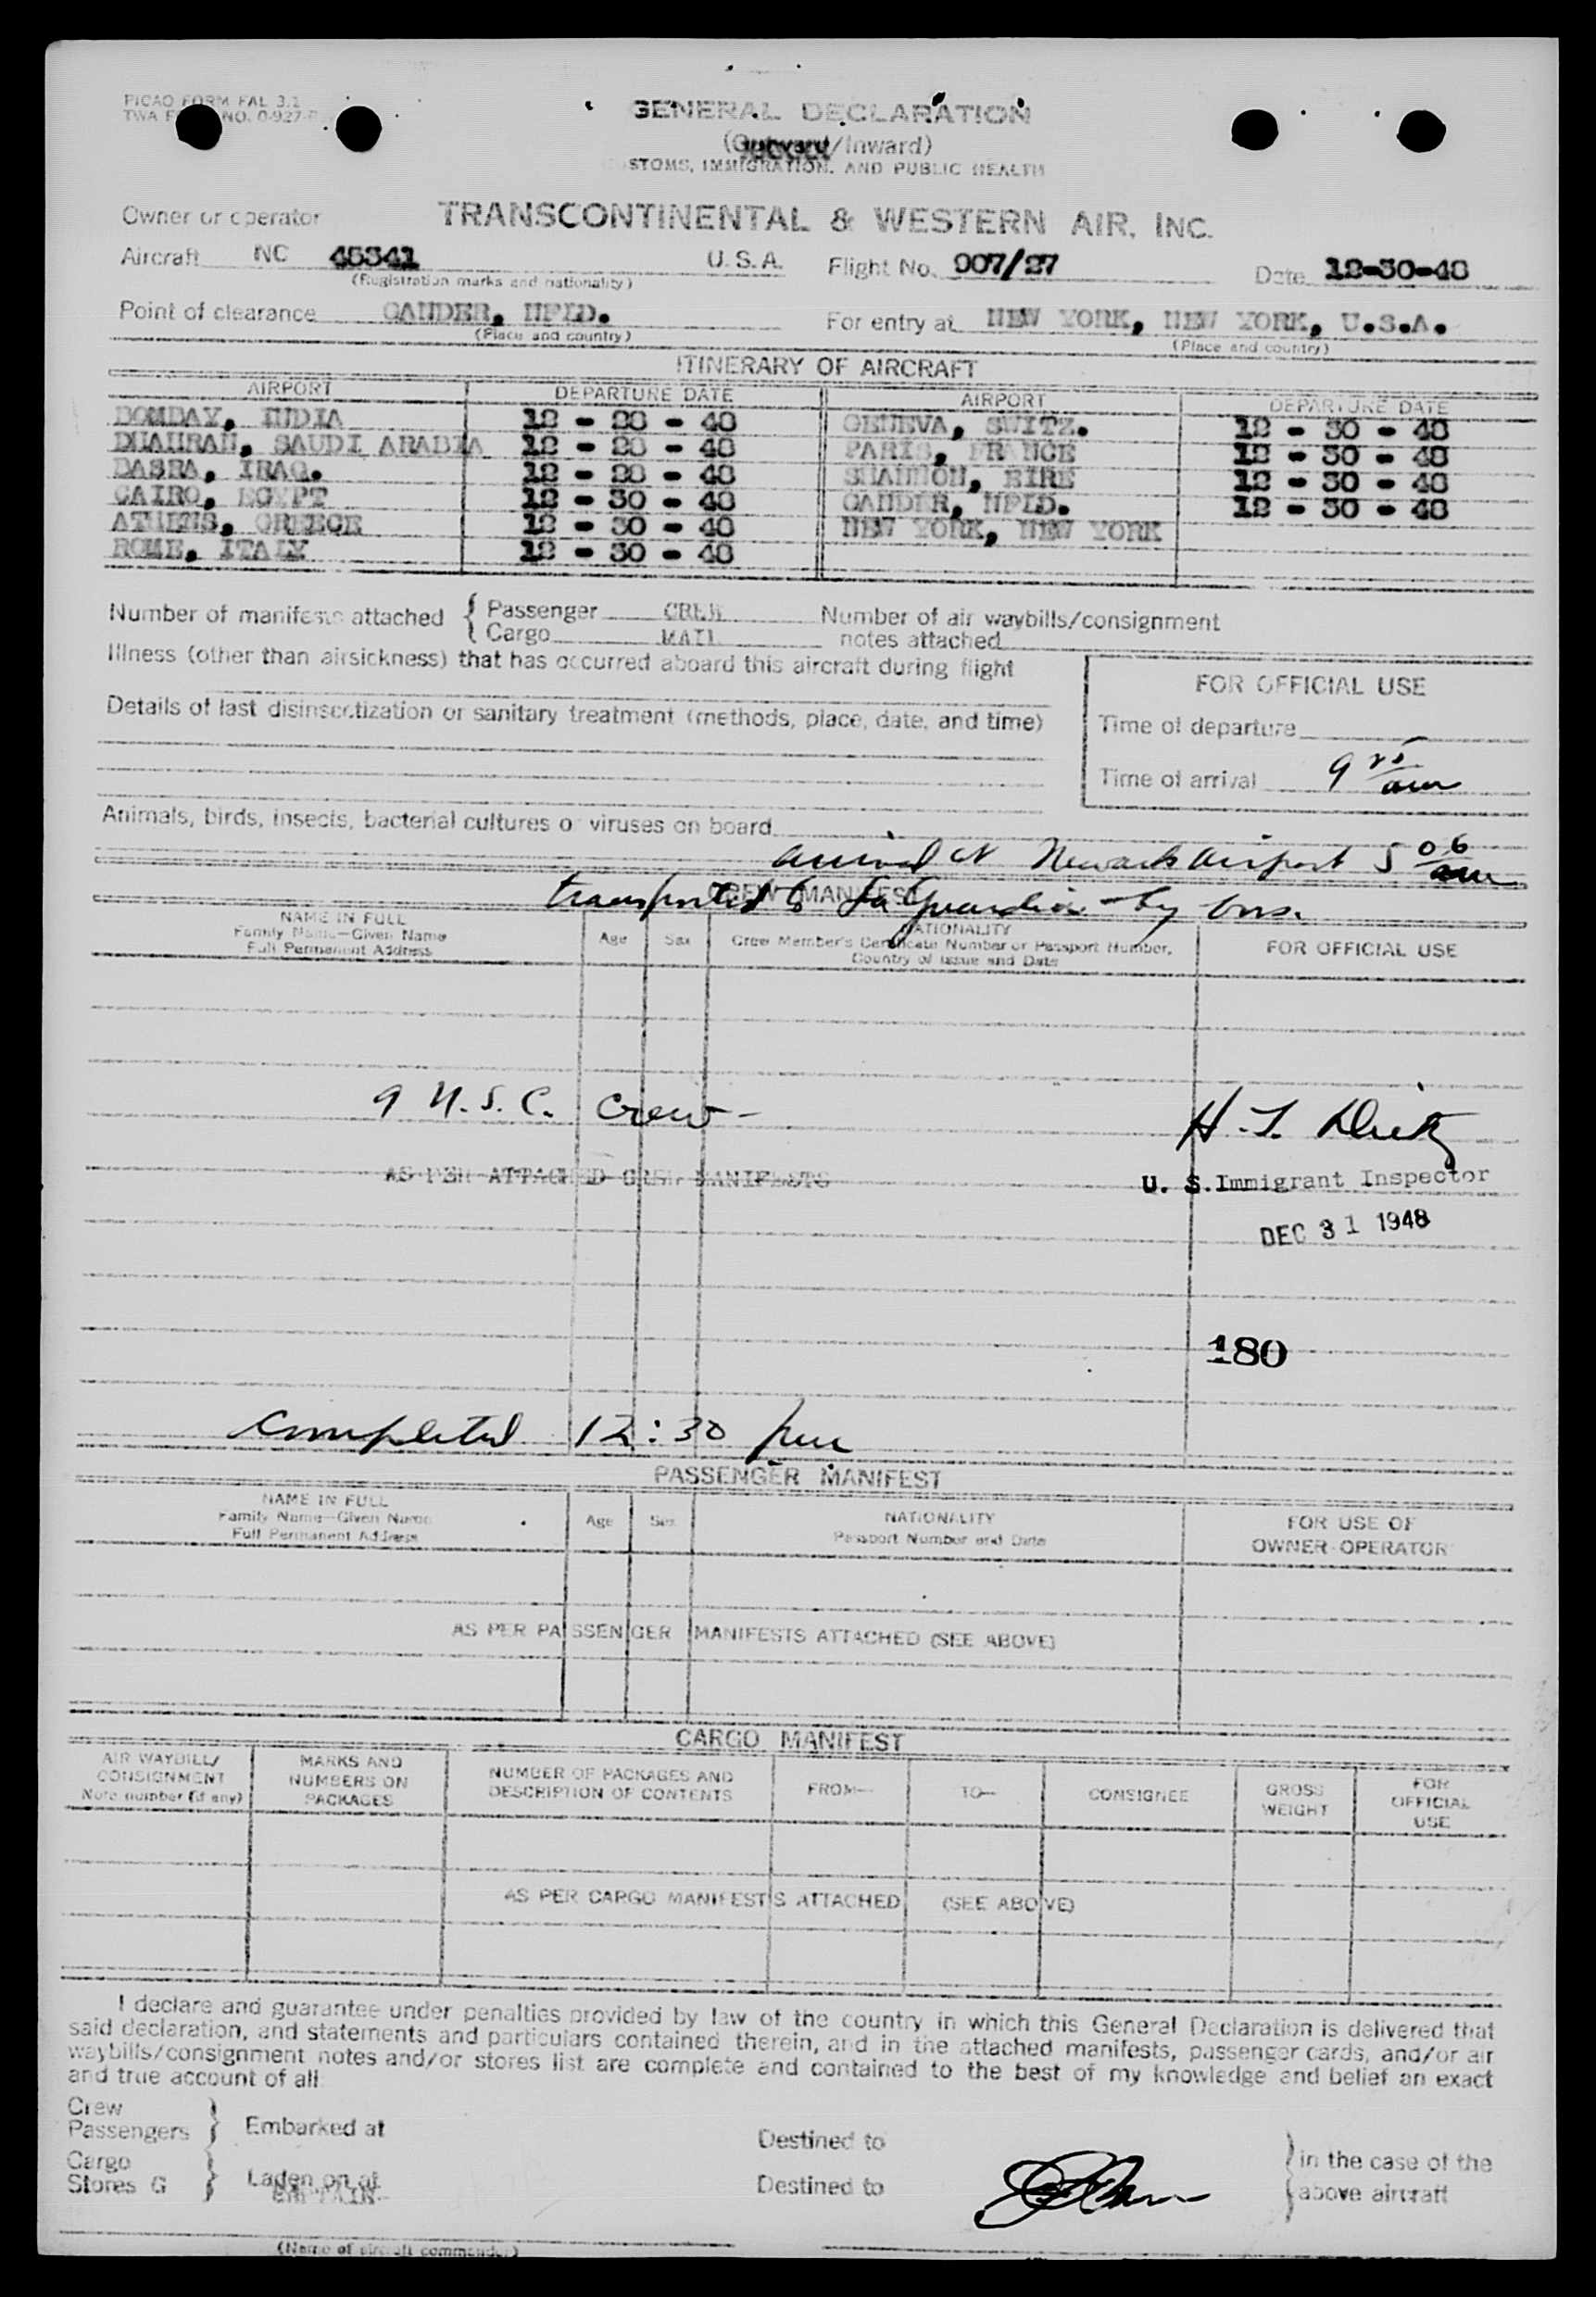 PICAO FORM FAL 3.1
TWA NO. 0-927-
GENERAL DECLARATION
(Outward/Inward)
STOMS, IMMIGRATION, AND PUBLIC HEALTH
Owner or operator TRANSCONTINENTAL & WESTERN AIR, INC.
Aircraft NC 45341 U.S.A. Flight No. 907/27 Date 12-30-48
(Registration marks and nationality)
Point of clearance GANDER, NFLD. For entry at NEW YORK, NEW YORK, U.S.A.
(Place and country) (Place and country)
ITINERARY OF AIRCRAFT
AIRPORT DEPARTURE DATE AIRPORT DEPARTURE DATE
BOMBAY, INDIA 12 - 28 - 48 GENEVA, SWITZ. 12 - 30 - 48
DHAHRAN, SAUDI ARABIA 12 - 28 - 48 PARIS, FRANCE 12 - 30 - 48
BASRA, IRAQ. 12 - 28 - 48 SHANNON, EIRE 12 - 30 - 48
CAIRO, EGYPT 12 - 30 - 48 GANDER, NFLD. 12 - 30 - 48
ATHENS, GREECE 12 - 30 - 48 NEW YORK, NEW YORK
ROME, ITALY 12 - 30 - 48
Number of manifests attached { Passenger CREW Number of air waybills/consignment
Cargo MAIL notes attached
Illness (other than airsickness) that has occurred aboard this aircraft during flight
FOR OFFICIAL USE
Details of last disinsectization or sanitary treatment (methods, place, date, and time)
Time of departure
Time of arrival 9 25 am
Animals, birds, insects, bacterial cultures or viruses on board
arrived at Newark airport 5 06 am
CREW MANIFEST
transported to La Guardia - by bus.
NAME IN FULL
Family Name—Given Name
Full Permanent Address
Age Sex
NATIONALITY
Crew Member's Certificate Number or Passport Number,
Country of Issue and Date
FOR OFFICIAL USE
9 U.S.C. Crew -
H. J.
AS PER ATTACHED CREW MANIFESTS
U. S. Immigrant Inspector
DEC 31 1948
180
Completed 12:30 pm
PASSENGER MANIFEST
NAME IN FULL
Family Name—Given Name
Full Permanent Address
Age Sex
NATIONALITY
Passport Number and Date
FOR USE OF
OWNER-OPERATOR
AS PER PASSENGER MANIFESTS ATTACHED (SEE ABOVE)
CARGO MANIFEST
AIR WAYBILL/
CONSIGNMENT
Note number (if any)
MARKS AND
NUMBERS ON
PACKAGES
NUMBER OF PACKAGES AND
DESCRIPTION OF CONTENTS
FROM—
TO—
CONSIGNEE
GROSS
WEIGHT
FOR
OFFICIAL
USE
AS PER CARGO MANIFESTS ATTACHED (SEE ABOVE)
I declare and guarantee under penalties provided by law of the country in which this General Declaration is delivered that
said declaration, and statements and particulars contained therein, and in the attached manifests, passenger cards, and/or air
waybills/consignment notes and/or stores list are complete and contained to the best of my knowledge and belief an exact
and true account of all
Crew
Passengers } Embarked at Destined to
Cargo
Stores G } Laden on at Destined to
} in the case of the
above aircraft
(Name of aircraft commander)